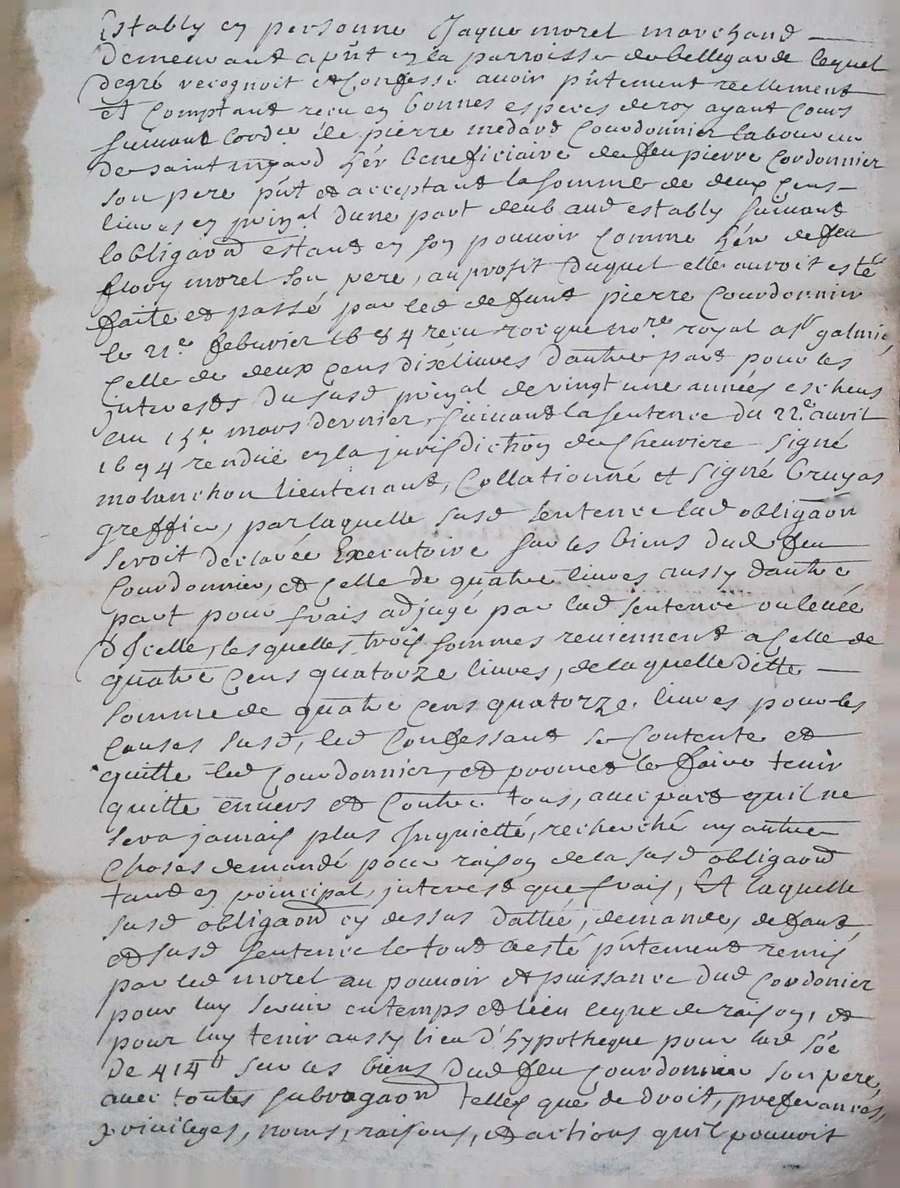 Estably en personne Jaque morel marchand
Demeurant apnt en la parroisse de bellegarde lequel
degré recognoit et Confesse avoir pntement reellement
et Comptant receu en bonnes especes de roy ayant Cours
suivant lordce de pierre medard Courdonnier laboureur
de saint medard hér beneficiaire de feu pierre Cordonnier
son pere pnt et acceptant la somme de deux cens
livres en prinpal dune part deub aud estably suivant
lobligaon estant en son pouvoir comme hér de feu
flory morel son pere, au profit duquel elle auroit esté
faite et passé par led defunt pierre Courdonnier
le 21e febvrier 1684 receu rocque nore royal a st galmie,
Celle de deux cens dix livres dautre part pour les
interests du susd prinpal de vingt une années escheus
au 15e mars dernier, suivant la sentence du 22e avril
1694 rendue en la jurisdiction de Chevriere signé
molanchon lieutenant, Collationné et signé bruyas
greffier, par laquelle susd sentence lad obligaon
seroit declarée Executoire sur les biens dud feu
Courdonnier, et celle de quatre livres aussy dautre
part pour frais adjugé par lad sentence ou levée
d'Icelle, lesquelles trois sommes reviennent a celle de
quatre cens quatorze livres, de laquelle ditte
somme de quatre cens quatorze livres pour les
causes susd, led Confessant se Contente et
quitte led Courdonnier, et promet le faire tenir
quitte envers et Contre tous, avec pact quil ne
sera jamais plus Inquietté, recherché ny autre
Choses demandé pour raison de la susd obligaon
tant en principal, interest que frais, Et laquelle
susd obligaon cy dessus dattée, demande, defaut
et susd sentence le tout a esté pntement remis
par led morel au pouvoir et puissance dud Cordonier
pour luy servir en temps et lieu ce que de raison, et
pour luy tenir aussy lieu d'hypotheque pour lad soe
de 414tt sur les biens dud feu Courdonnier son pere,
avec toutes subrogaon telles que de droit, preferances,
privileges, noms, raisons, et actions quil pouvoit